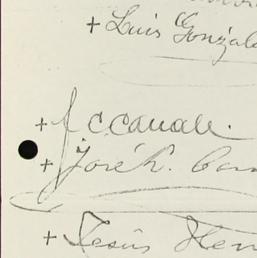 + Luis Gonzal
+ J. C. Canale.
+ José R. Can
+ Jesús Hen